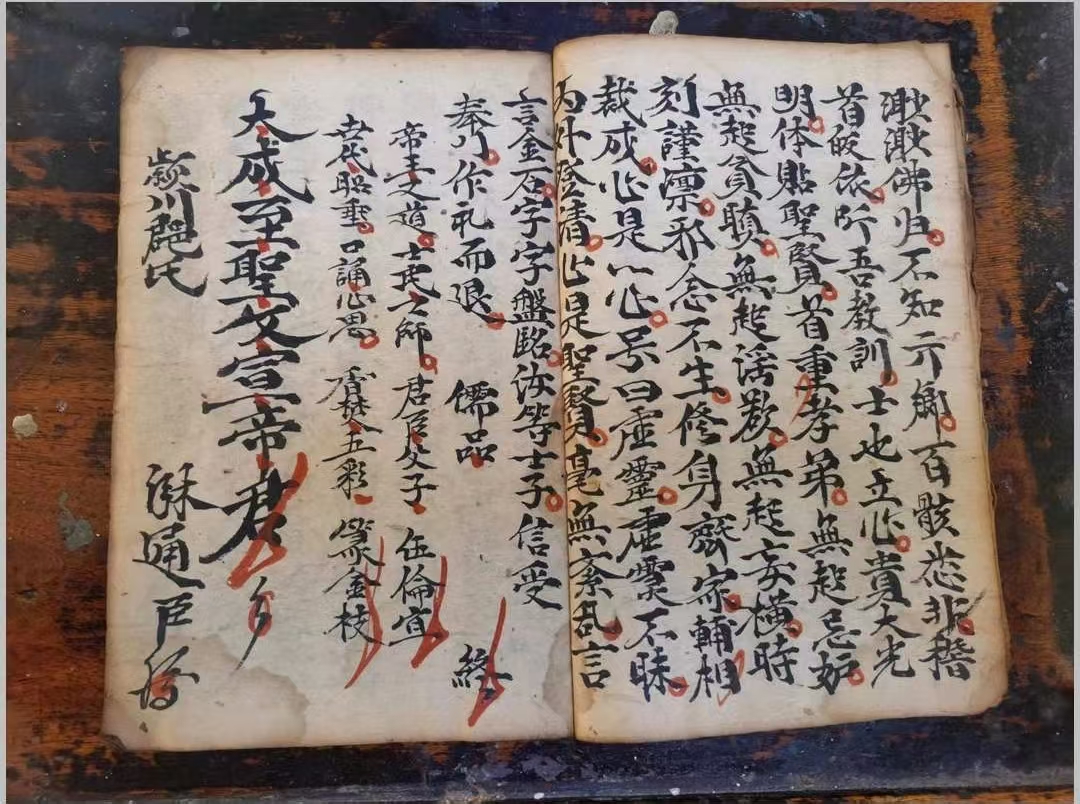 渺渺佛归不知亓觔百骸悉非稽
首皈依所吾教訓士也立心貴大光
明体貼聖賢首重孝弟無起忌妒
無起貪嗔無起淫欲無起妄橫時
刻謹凛邪念不生修身齊家輔相
裁成心是以心号曰虛靈虛灵不昧
内外澄清心是聖賢毫無紊乱言
言金石字字盤銘汝等士子信受
奉行作礼而退 儒品 終
帝王之道士民之師君臣父子伍倫宜
世代昭垂口誦心思香焚五彩篆金枝
大成至聖文宣帝君
潁川 氏
通臣